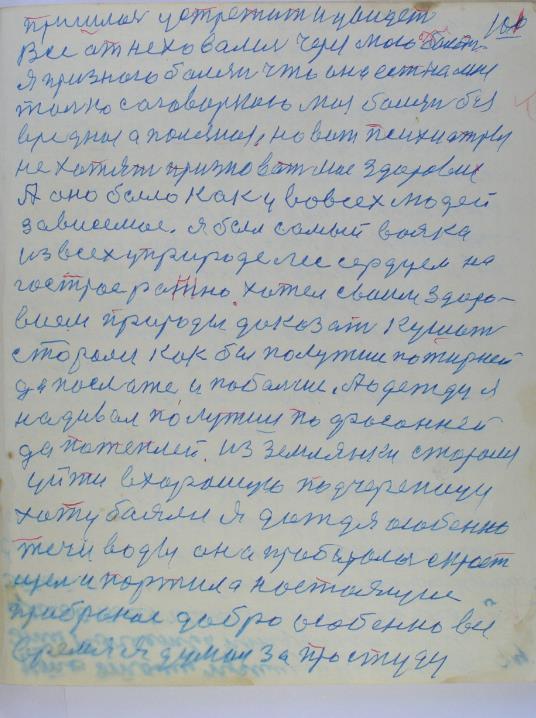 пришлая устрежит и увидет
Все от неховалися через мою болезн. 101
Я признаю болячи что она есть на мне
только соговорною моя болячи без
вредная а полезная, но вот психиатры
не хотят признават мое здоровие
А оно было как и вовсех людей
зависемае. я был самый вояка
из всех у природе лес сердцем на
гострае
хотел своим здоро-
вием природы доказат Кушат
старался как бы полутше пожирней
да послаже и побольше. А одежду я
надивал полутши по фасонней
да потеплей. из землянки старался
уйти в хорошую под черепицу
хату боялся я дождя особенно
течи воды она пробералася скрозь
и портила настоящие
прибраное добро особенно все
время я думал за простуду